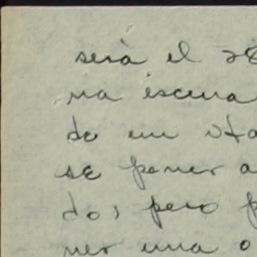 será el 28
na escena
de un sta
se poner a
dos pero p
ner una o